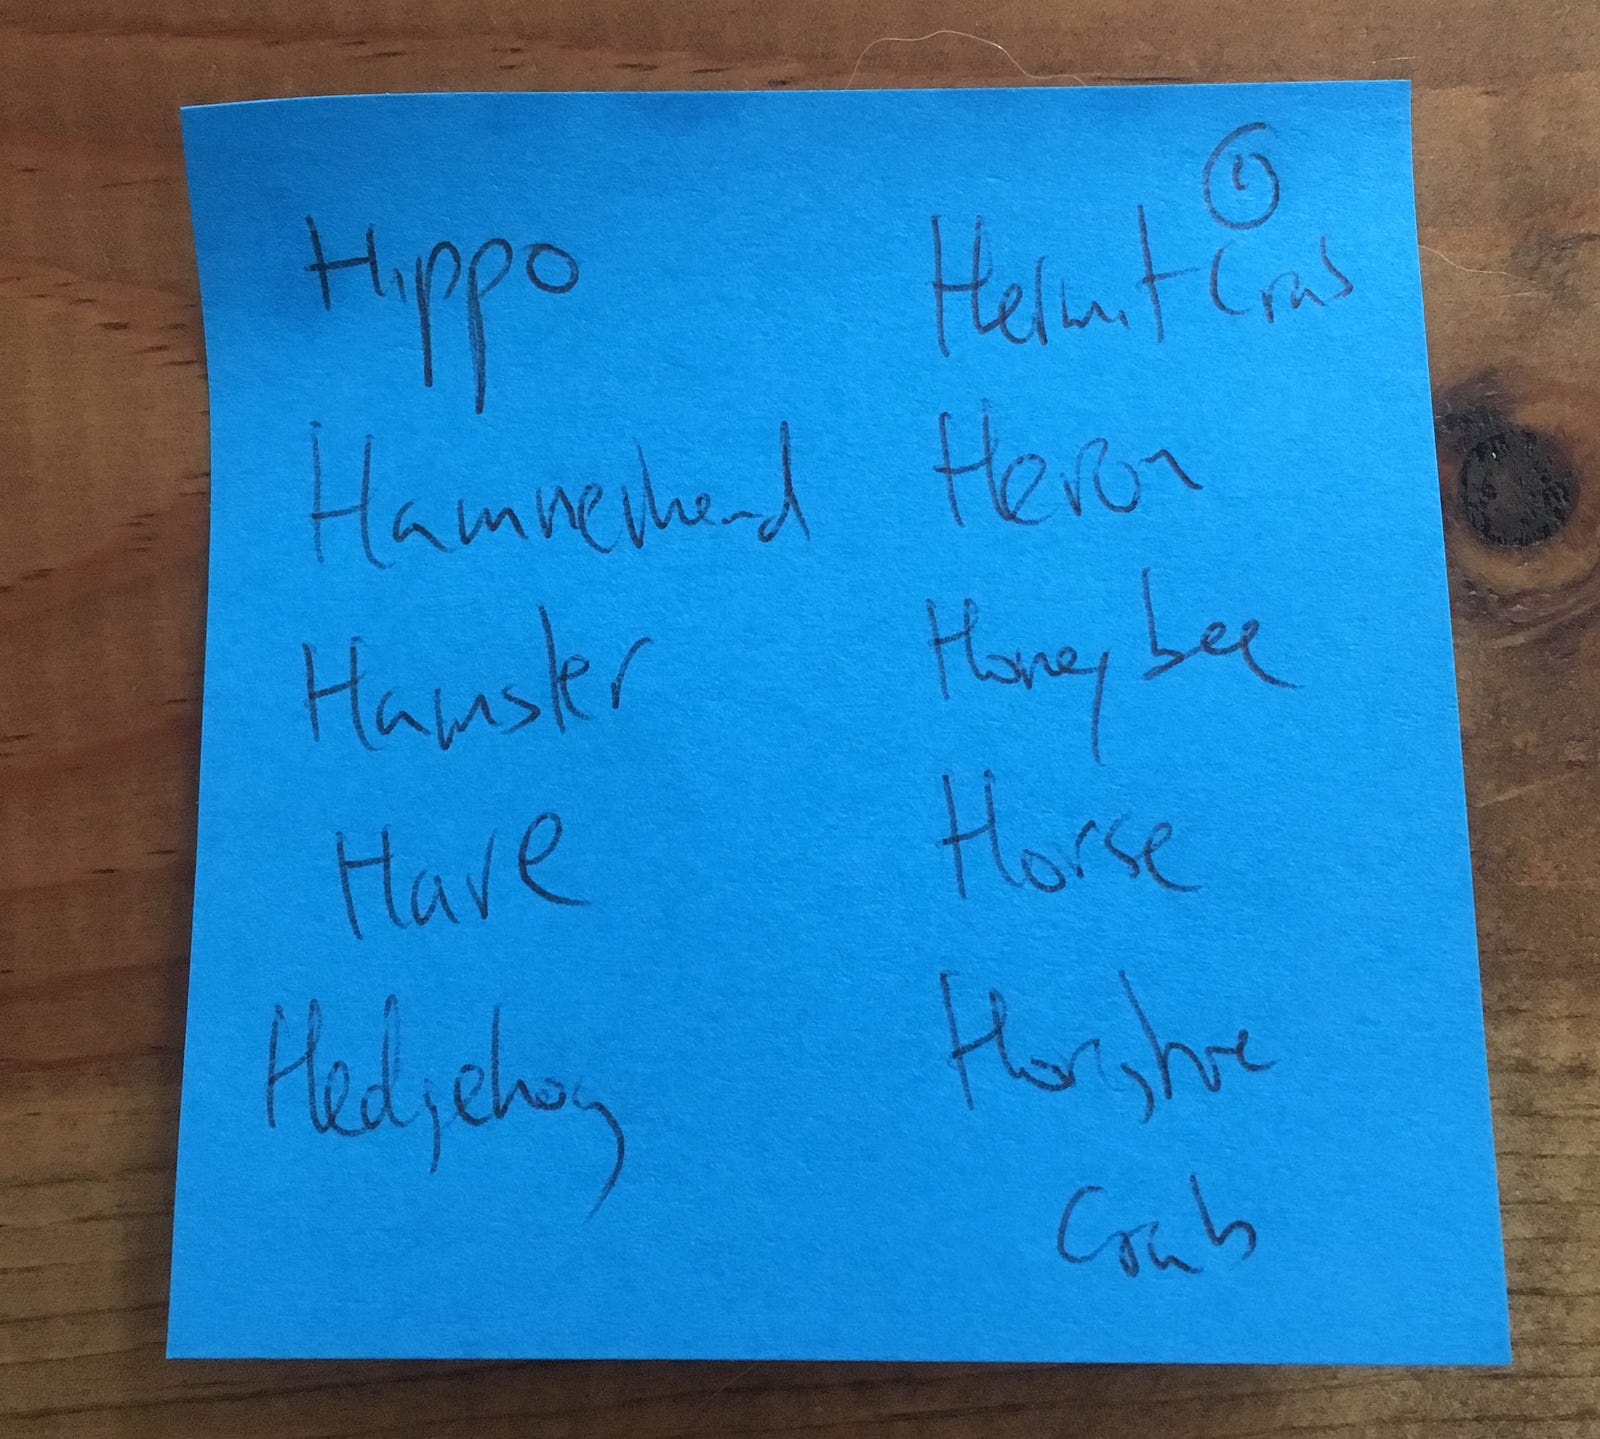 Hippo
Hammerhead
Hamster
Hare
Hedgehog
①
Hermit Crab
Heron
Honey bee
Horse
Horseshoe
Crab